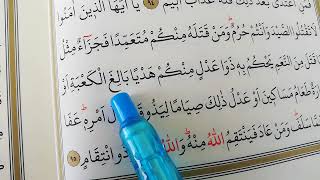 فَمَنِ اعْتَدٰى بَعْدَ ذٰلِكَ فَلَهُ عَذَابٌ اَلِيمٌ ٩٤ يَا اَيُّهَا الَّذِينَ اٰمَنُوا
لَا تَقْتُلُوا الصَّيْدَ وَاَنْتُمْ حُرُمٌ وَمَنْ قَتَلَهُ مِنْكُمْ مُتَعَمِّدًا فَجَزَٓاءٌ مِثْلُ
قَتَلَ مِنَ النَّعَمِ يَحْكُمُ بِهِ ذَوَا عَدْلٍ مِنْكُمْ هَدْيًا بَالِغَ الْكَعْبَةِ اَوْ
طَعَامُ مَسَاكِينَ اَوْ عَدْلُ ذٰلِكَ صِيَامًا لِيَذُوقَ اَمْرِهِ عَفَا
سَلَفَ وَمَنْ عَادَ فَيَنْتَقِمُ اللّٰهُ مِنْهُ وَاللّٰهُ ذُو انْتِقَامٍ ٩٥